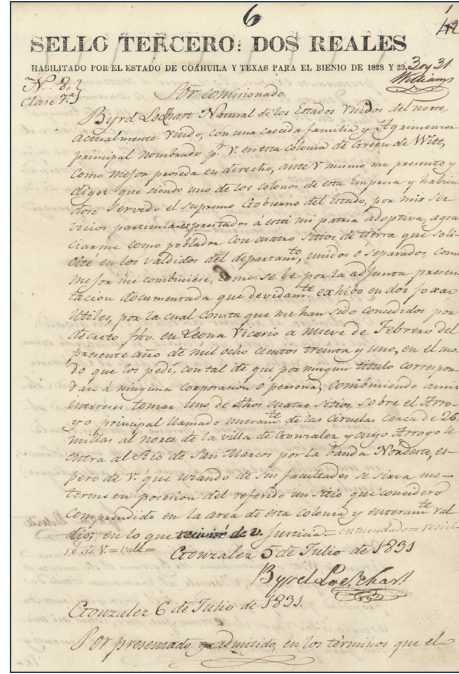 6
1
42
SELLO TERCERO: DOS REALES
HABILITADO POR EL ESTADO DE COAHUILA Y TEXAS PARA EL BIENIO DE 1828 Y 29. 30 y 31
Williams
N.º 8.
Clase 7.ª
Sor comisionado
Byrd Lockhart Natural de los Estados Unidos del norte
actualmente Viudo, con una crecida familia y Agrimensor
principal nombrado pr. V. en esta colonia de Green de Witt,
como mejor proceda en derecho, ante V mismo me presento y
digo: que siendo uno de los colonos de esta Empresa y habien
dose servido el supremo Gobierno del Estado, por mis ser
vicios particulares prestados á esta mi patria adoptiva, agra
ciarme como poblador con cuatro sitios de tierra que soli
cité en los valdios del departamto, unidos ó separados, como
mejor me combiniese, como se be por la adjunta presen
tacion documentada que devidamte exhibo en dos foxas
utiles, por la cual consta que me han sido concedidos por
decreto fho. en Leona Vicario a nueve de Febrero del
presente año de mil ocho cientos treinta y uno, en el mo
do que los pedi, con tal de que por ningun titulo correspon
dan à ninguna corporacion ò persona; combiniendo a mis
intereses tomar uno de dhos cuatro sitios sobre el Arro
yo principal llamado nuevamte de las Ciruelas cerca de 26
millas al norte de la villa de Gonzalez y cuyo Arroyo
entra al Rio de San Marcos por la banda Nordeste, es
pero de V. que uzando de sus facultades se sirva me
terme en posesion del referido un sitio que considero
comprendido en la area de esta colonia y enteramte val
dio; en lo que justicia = enmendado = recivi
ré de V. = vale =
Gonzalez 5 de Julio de 1831
Byrd Lockhart
Gonzalez 6 de Julio de 1831.
Por presentado y admitido, en los términos que el